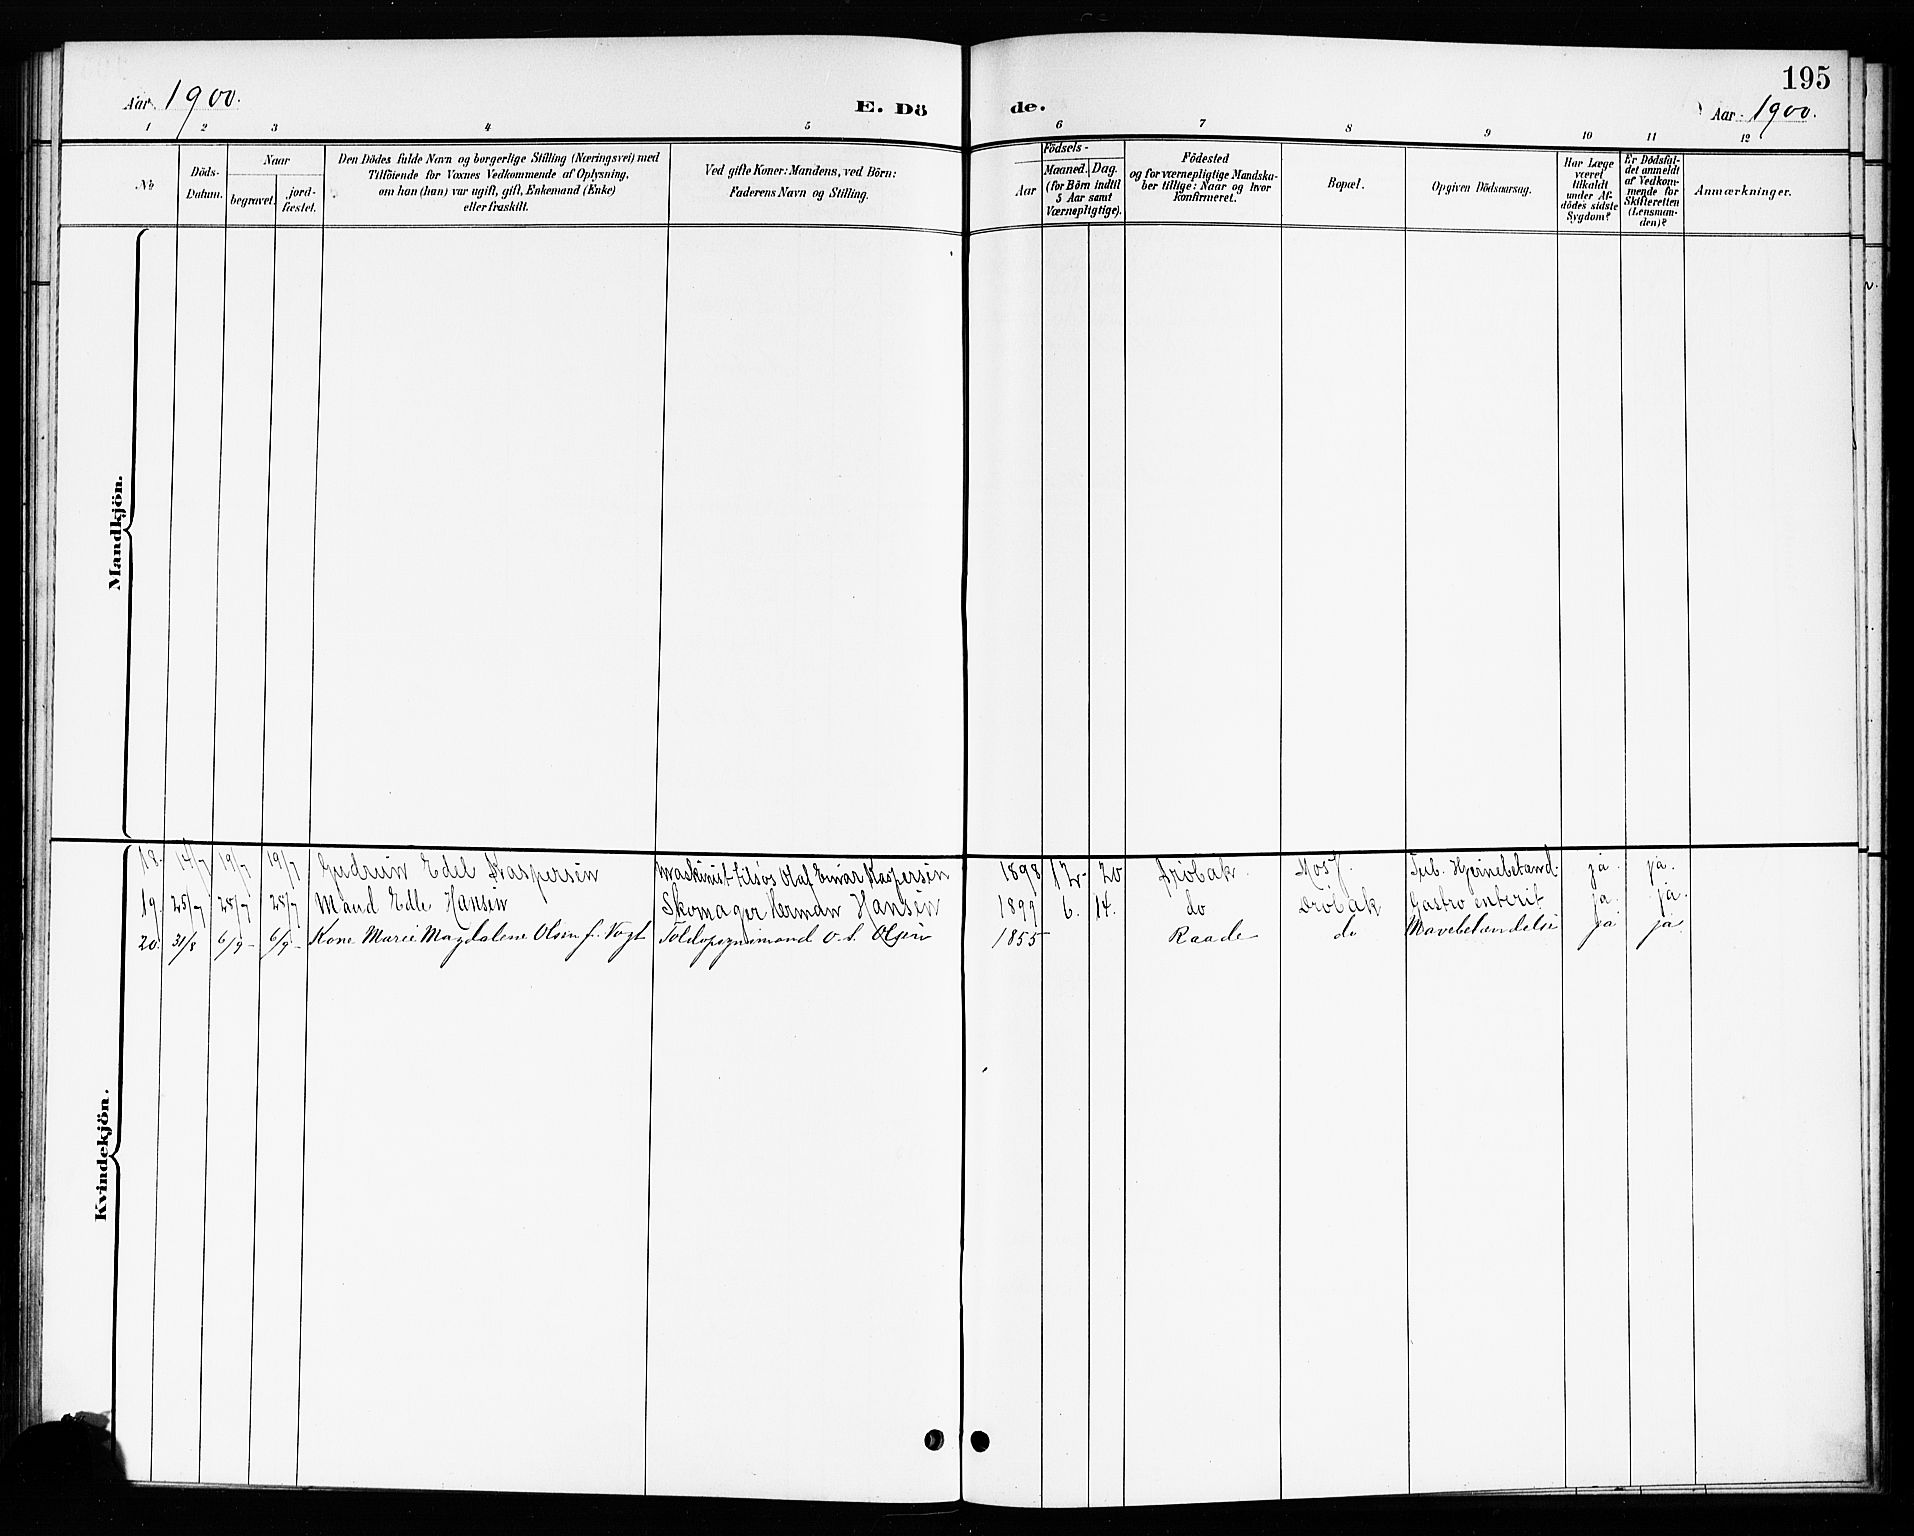 195
Aar 1900.
E. Dö de.
Aar 1900.
1 2 3 4 5 6 7 8 9 10 11 12
No
Döds-Datum.
Naar
begravet.
jord-fæstet.
Den Dödes fulde Navn og borgerlige Stilling (Næringsvei) med
Tilföiende for Voxnes Vedkommende af Oplysning,
om han (hun) var ugift, gift, Enkemand (Enke)
eller fraskilt.
Ved gifte Koner: Mandens, ved Börn:
Faderens Navn og Stilling.
Födsels-
Aar
Maaned. Dag.
(for Börn indtil
5 Aar samt
Værnepligtige).
Födested
og for værnepligtige Mandska-
ber tillige: Naar og hvor
konfirmeret.
Bopæl.
Opgiven Dödsaarsag.
Har Læge
været
tilkaldt
under Af-
dödes sidste
Sygdom?
Er Dödsfal-
det anmeldt
af Vedkom-
mende for
Skifteretten
(Lensman-
den)?
Anmærkninger.
Mandkjön.
Kvindekjön.
18. 17/7 19/7 19/7 Gudrun Edel Kaspersen Maskinist Olaf Einar Kaspersen 1898 12 20 Dröbak Moss. Tub. Hjernebetænd. ja. ja.
19. 25/7 28/7 28/7 Maud Edle Hansen Skomager Herman Hansen 1899 6. 14. do Dröbak Gastro enterit ja. ja.
20. 31/8 6/9 6/9 Kone Marie Magdalene Olsen f. Vogt Toldopsynsmand O. L. Olsen 1855 Raade do Mavebetændelse ja ja